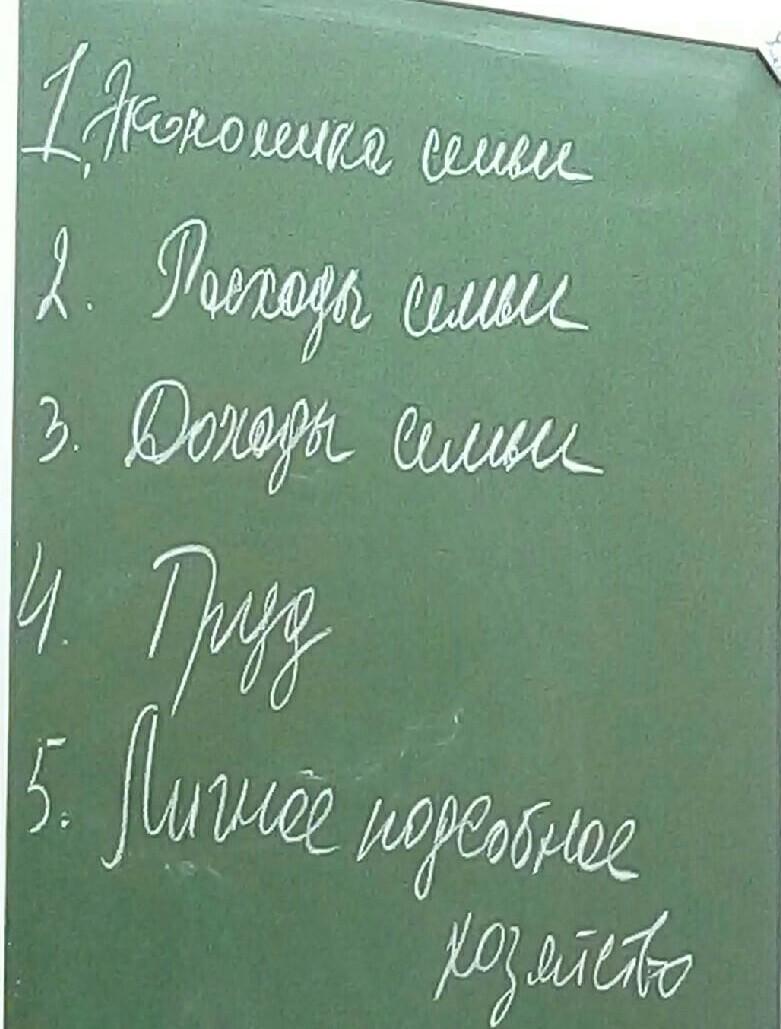 1. Экономика семьи
2. Расходы семьи
3. Доходы семьи
4. Труд
5. Личное подсобное
хозяйство